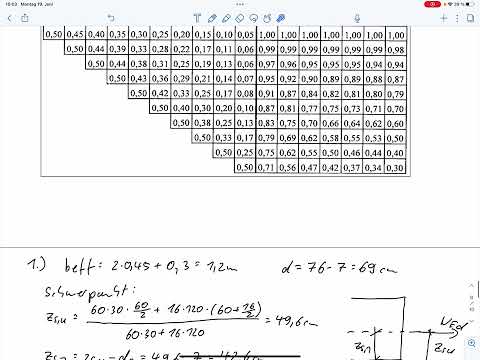 10:03 Montag 19. Juni
39 %
0,50 0,45 0,40 0,35 0,30 0,25 0,20 0,15 0,10 0,05 1,00 1,00 1,00 1,00 1,00 1,00 1,00
0,50 0,44 0,39 0,33 0,28 0,22 0,17 0,11 0,06 0,99 0,99 0,99 0,99 0,99 0,99 0,98
0,50 0,44 0,38 0,31 0,25 0,19 0,13 0,06 0,97 0,96 0,95 0,95 0,95 0,94 0,94
0,50 0,43 0,36 0,29 0,21 0,14 0,07 0,95 0,92 0,90 0,89 0,89 0,88 0,87
0,50 0,42 0,33 0,25 0,17 0,08 0,91 0,87 0,84 0,82 0,81 0,80 0,79
0,50 0,40 0,30 0,20 0,10 0,87 0,81 0,77 0,75 0,73 0,71 0,70
0,50 0,38 0,25 0,13 0,83 0,75 0,70 0,66 0,64 0,62 0,60
0,50 0,33 0,17 0,79 0,69 0,62 0,58 0,55 0,53 0,50
0,50 0,25 0,75 0,62 0,55 0,50 0,46 0,44 0,40
0,50 0,71 0,56 0,47 0,42 0,37 0,34 0,30
1.) beff = 2·0,45 + 0,3 = 1,2m d = 76 - 7 = 69 cm
Schwerpunkt:
zsu = (60·30·60/2 + 16·120·(60+16/2)) / (60·30 + 16·120) = 49,6 cm
NEd
zsn
zsu